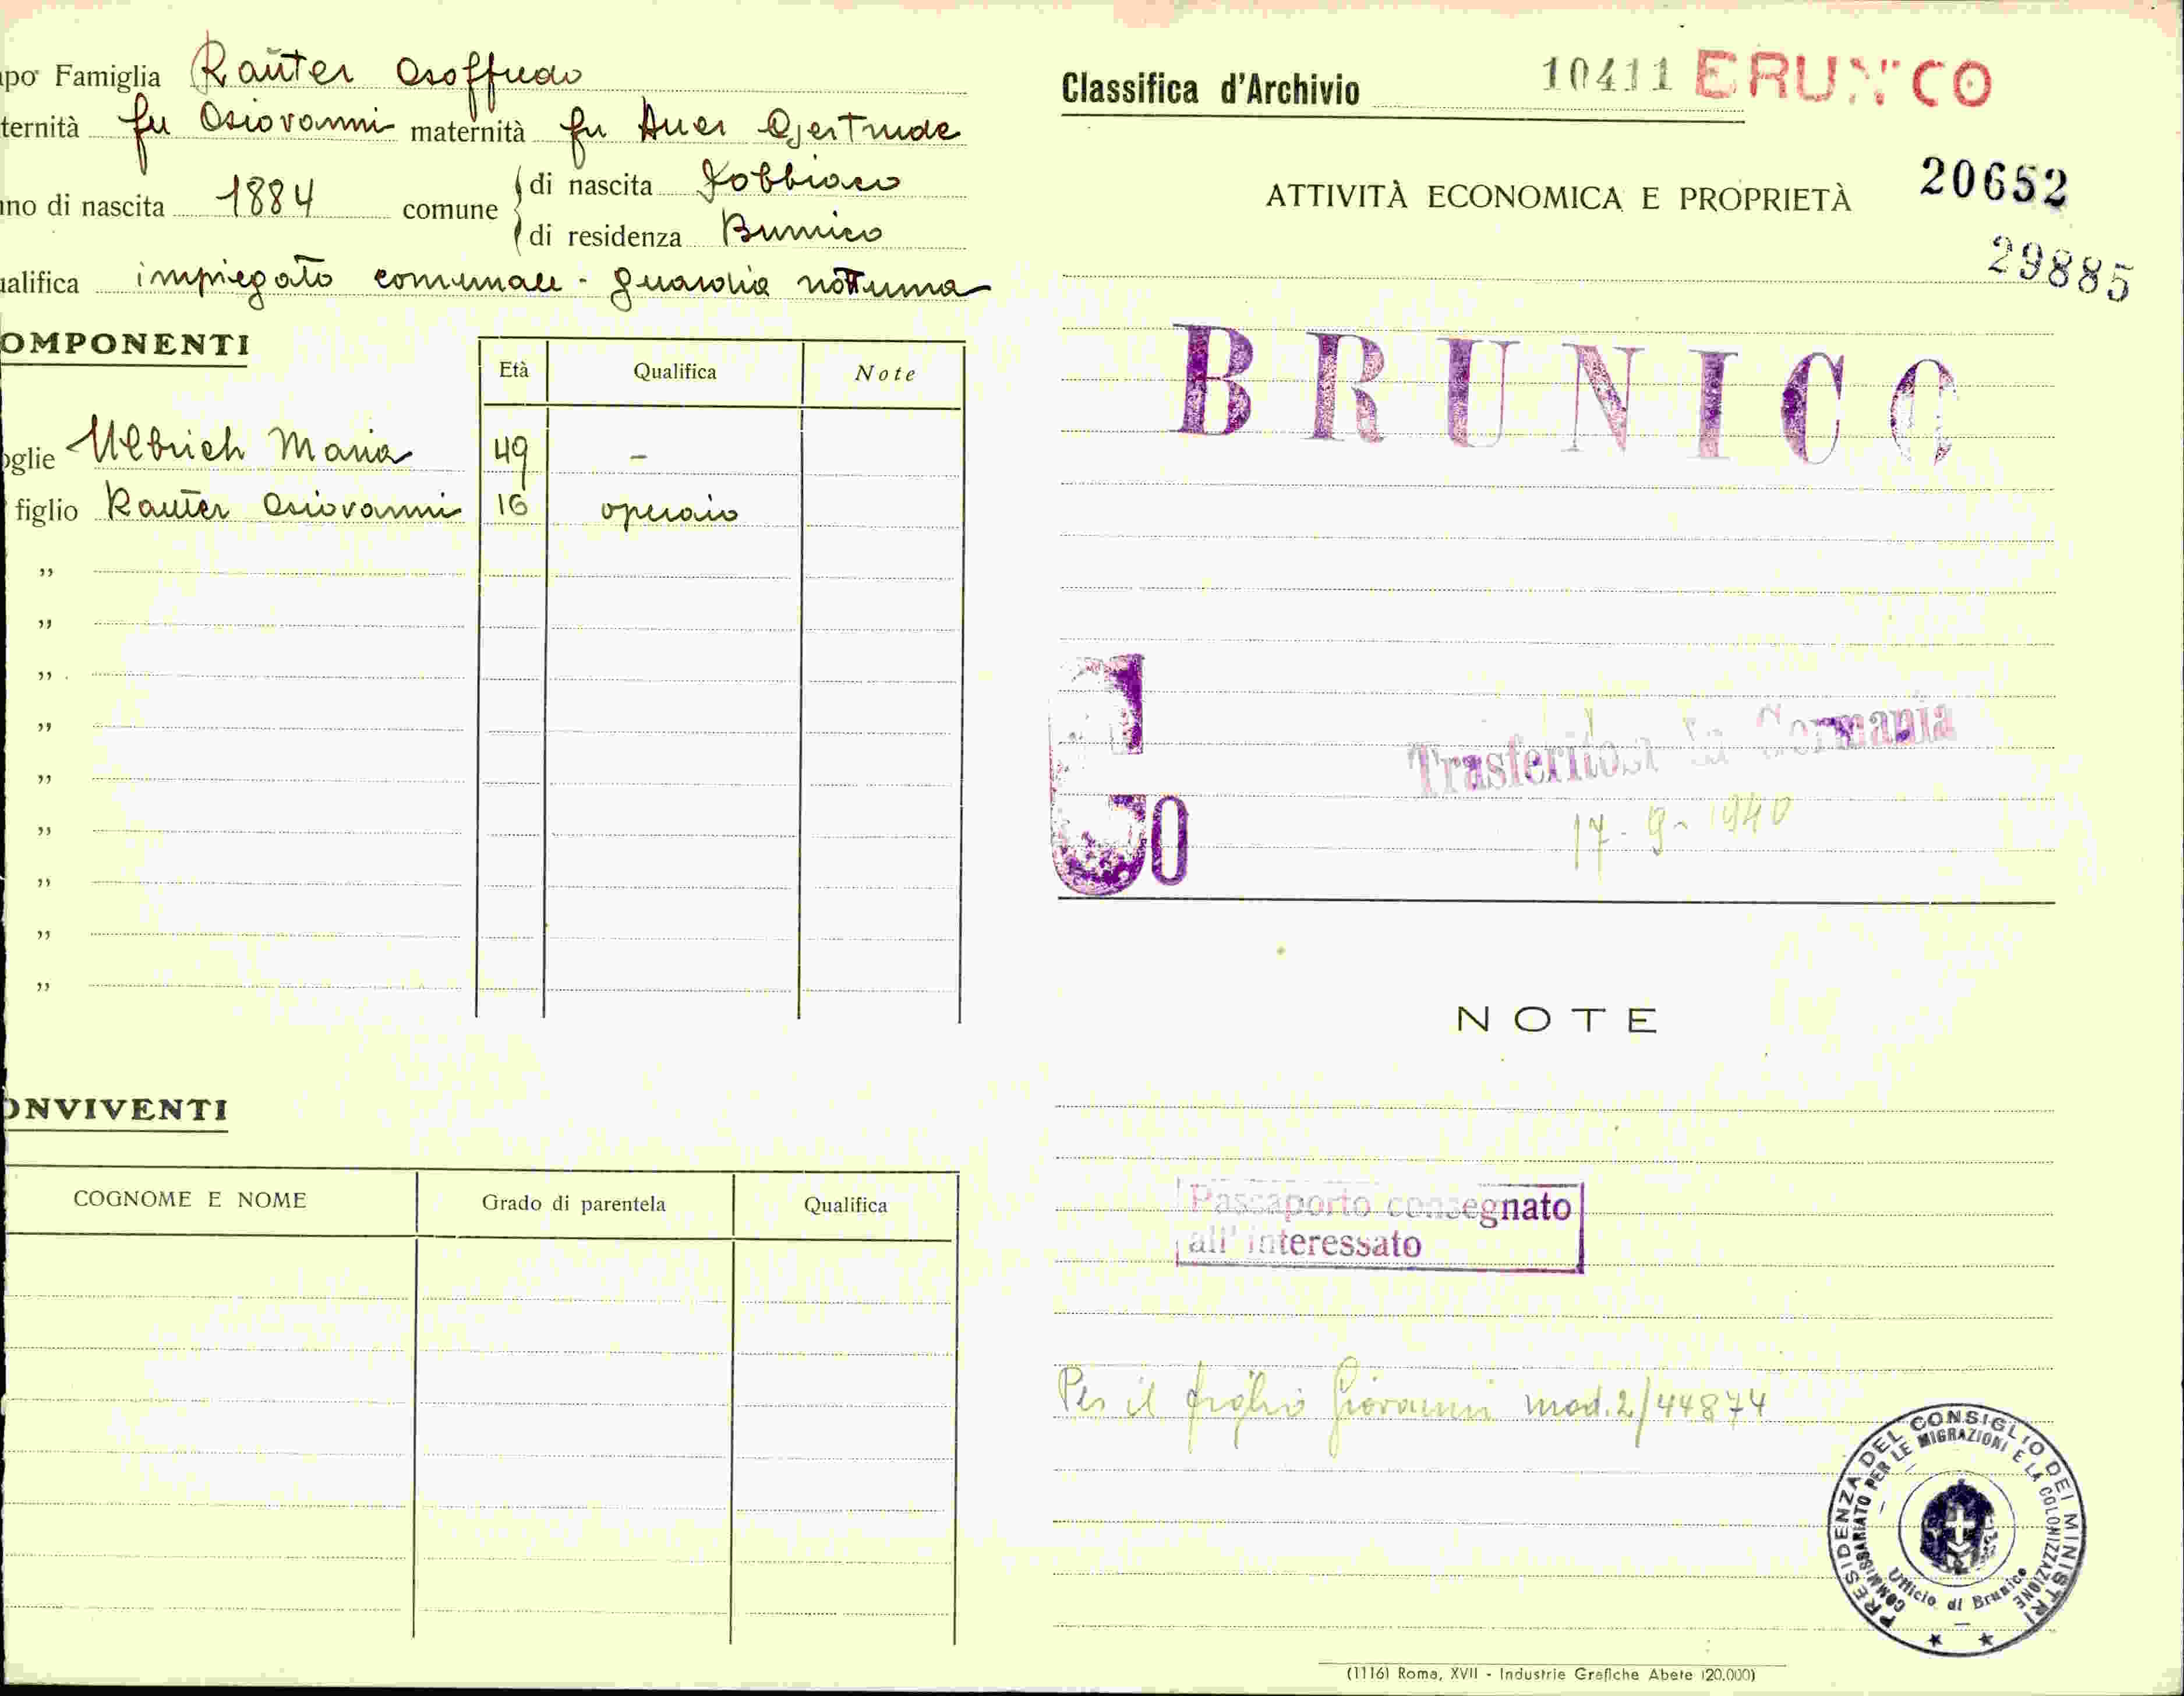 po Famiglia Rauter Goffredo
ternità fu Giovanni maternità fu Auer Gertrude
no di nascita 1884 comune di nascita Dobbiaco
di residenza Brunico
alifica impiegato comunale - guardia notturna
OMPONENTI
Età Qualifica Note
oglie Ulbrich Maria 49 -
figlio Rauter Giovanni 16 operaio
”
”
”
”
”
”
”
”
”
ONVIVENTI
COGNOME E NOME Grado di parentela Qualifica
Classifica d'Archivio 10411 BRUNICO
ATTIVITÀ ECONOMICA E PROPRIETÀ 20652
29885
BRUNICO
Trasferitosi in Germania
17-9-1940
NOTE
Passaporto consegnato
all'interessato
Per il figlio Giovanni mod. 2/44874
PRESIDENZA DEL CONSIGLIO DEI MINISTRI
COMMISSARIATO PER LE MIGRAZIONI E LA COLONIZZAZIONE
Ufficio di Brunico
(1116) Roma, XVII - Industrie Grafiche Abete (20.000)